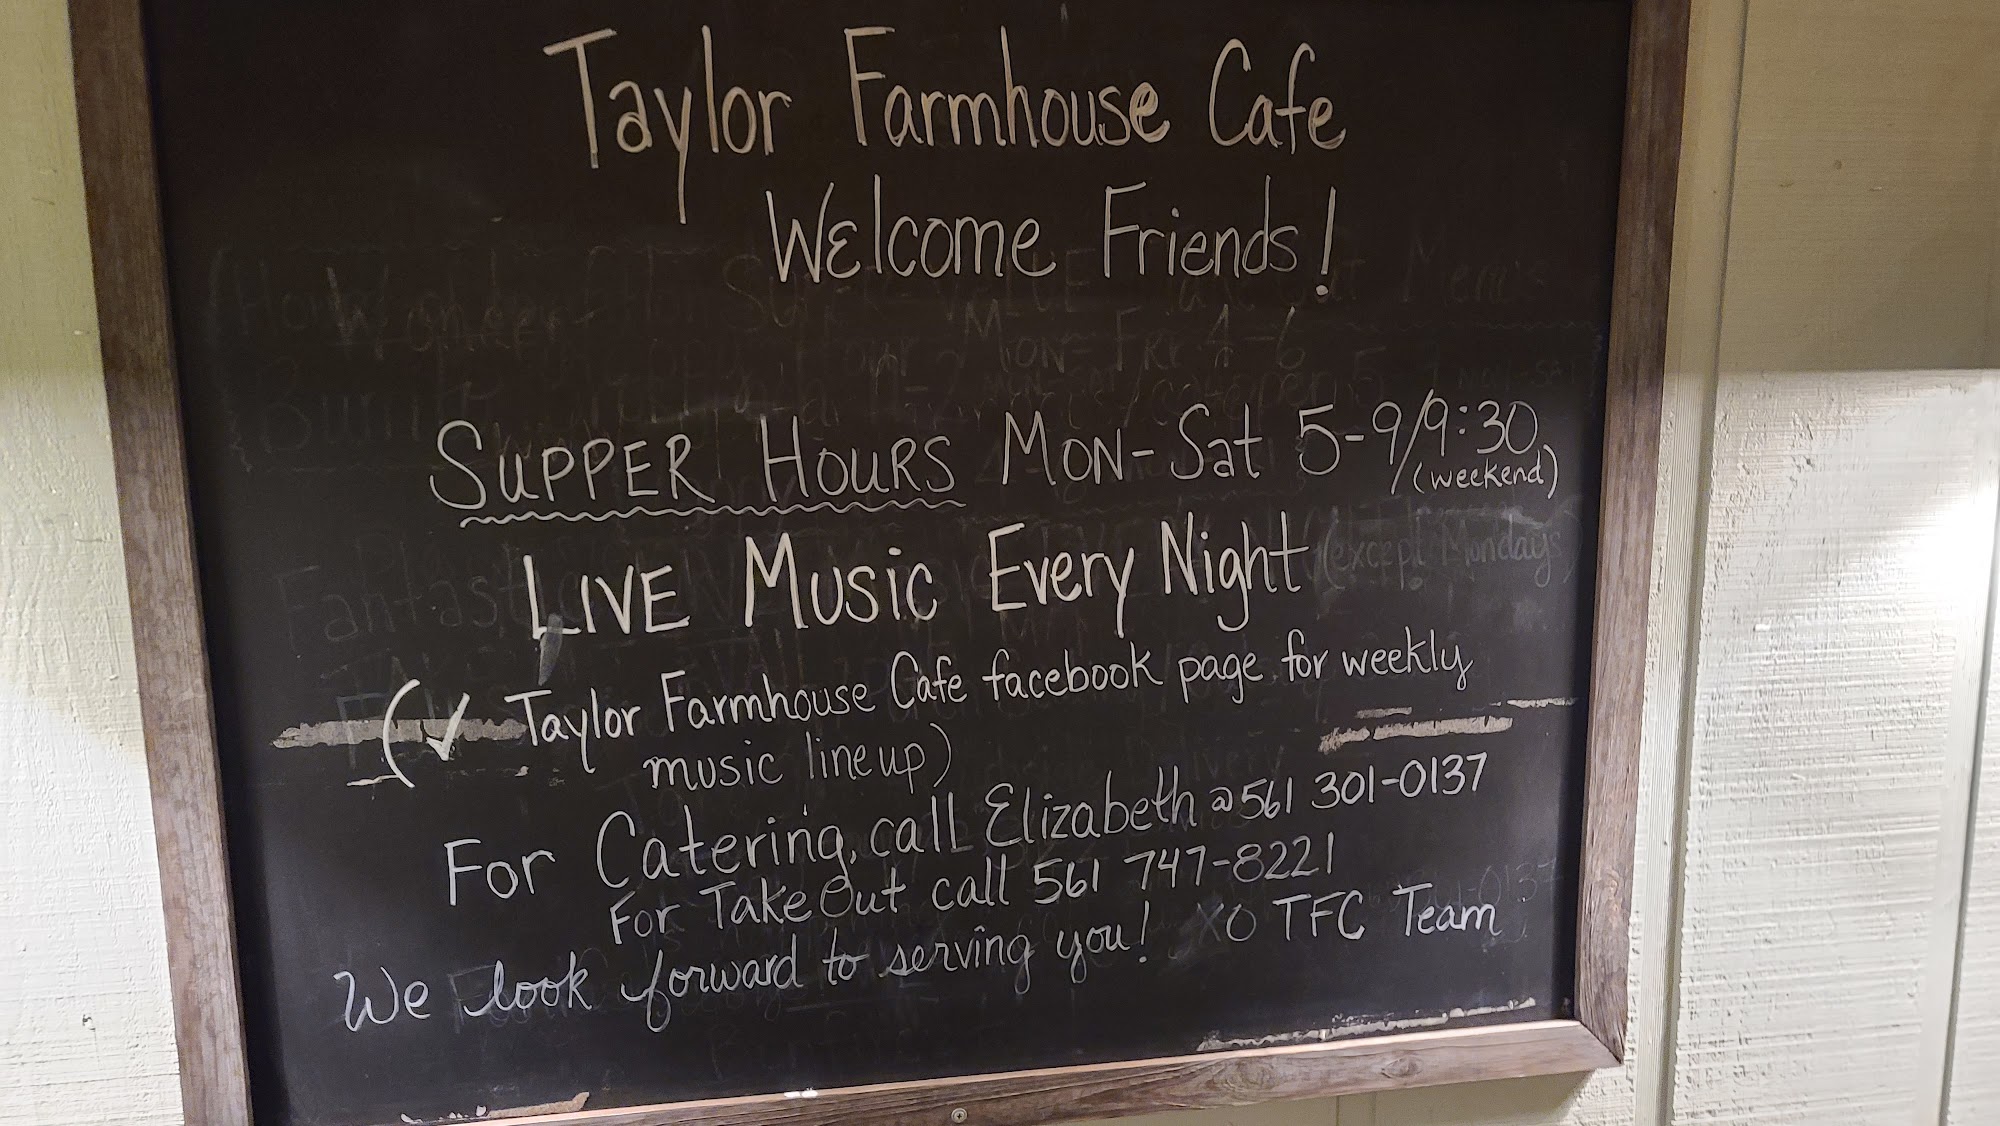 Taylor Farmhouse Cafe
Welcome Friends!
Mon-Fri 4-6
SUPPER HOURS MON-Sat 5-9/9:30
(weekend)
LIVE MUSIC Every Night (except Mondays)
(✓ Taylor Farmhouse Cafe facebook page for weekly
music lineup)
For Catering, call Elizabeth @ 561 301-0137
For TakeOut call 561 747-8221
We look forward to serving you! XO TFC Team